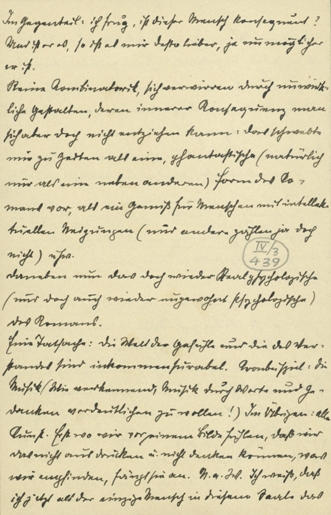 Im Gegenteil: ich frug, ist dieser Mensch konsequent?
Und ist er es, so ist es mir desto lieber, je unmöglicher
er ist.
Reine Kombinatorik, sich verwirren durch unwirk-
liche Gestalten, deren innerer Konsequenz man
sich aber doch nicht entziehen kann: das schwebte
mir zu Zeiten als eine, phantastische (natürlich
nur als eine neben anderen) Form des Ro-
mans vor, als ein Genuß für Menschen mit intellek-
tuellen Neigungen (nur andere zählen ja doch
nicht) usw.
IV/3
439
Daneben nun das doch wieder Realpsychologische
(nur doch auch wieder ungewohnt psychologische)
des Romans.
Eine Tatsache: die Welt der Gefühle und die des Ver-
standes sind inkommensurabel. Vorbeispiel: die
Musik (Wie verkennend, Musik durch Worte und Ge-
danken verdeutlichen zu wollen!) Im Übrigen: alle
Kunst. Erst wo wir vor einem Bilde fühlen, daß wir
das nicht ausdrücken u. nicht denken können, was
wir empfinden, fängt sie an. U.a.W. Ich weiß, daß
ich jetzt als der einzige Mensch in diesem Saale das